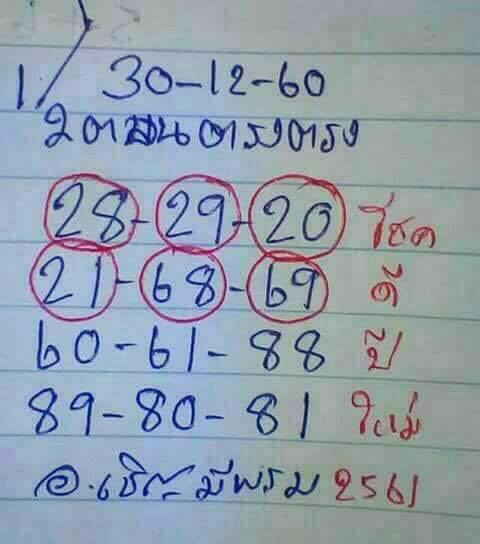 1/ 30-12-60
2ตบนตรงตรง
28-29-20 โชค
21-68-69 ดี
60-61-88 ปี
89-80-81 ใหม่
อ. มีพรม 2561